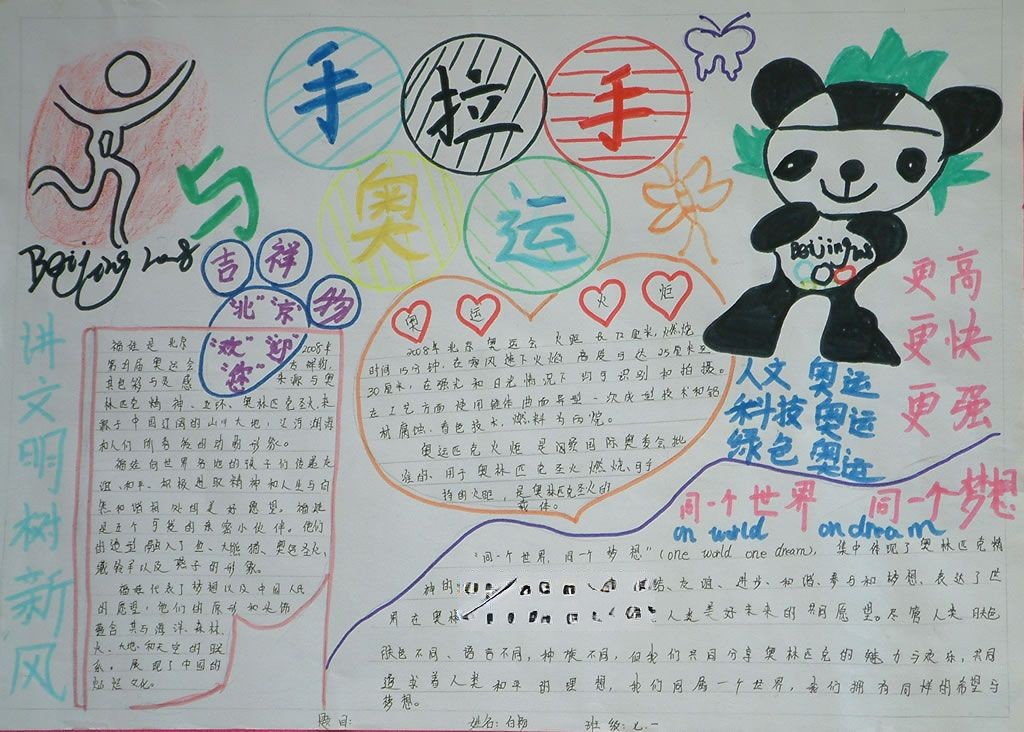 手拉手
与
奥运
Beijing 2008
吉祥物
"北""京"
"欢""迎"
"你"
讲文明树新风
福娃是北京2008年
第29届奥运会吉祥物,
其色彩与灵感来源与奥
林匹克精神、五环、
福娃向世界各地的孩子们传递友
谊、和平、积极进取精神和人与自
然和谐相处的美好愿望。福娃
是五个可爱的亲密小伙伴,他们
的造型融入了鱼、大熊猫、奥运圣火、
藏羚羊以及燕子的形象。
福娃代表了梦想以及中国人民
的愿望,他们的原形和头饰
蕴含其与海洋、森林、
火、大地和天空的联
系,展现了中国的
灿烂文化。
奥运火炬
2008年北京奥运会火炬长72厘米,燃烧
时间15分钟,在零风速下火焰高度可达25厘米至
30厘米,在强光和日光情况下均可识别和拍摄。
在工艺方面使用锥体曲面异型一次成型技术和铝
材腐蚀、着色技术,燃料为丙烷。
奥运匹克火炬是
准的、用于奥林匹克圣火燃烧、可手
持的火炬,是奥林匹克圣火的
载体。
Beijing 2008
更高
更快
更强
人文奥运
科技奥运
绿色奥运
同一个世界 同一个梦想
on world on dream
"同一个世界,同一个梦想"(one world one dream),集中体现了奥林匹克精
神的 结、友谊、进步、和谐、参与和梦想,表达了世
界在奥林 人类美好未来的共同愿望。尽管人类肤色
肤色不同、语言不同,种族不同,但我们共同分享奥林匹克的魅力与欢乐,共同
追求着人类和平的理想,我们同属一个世界,我们拥有同样的希望与
梦想。
题目: 姓名: 班级: